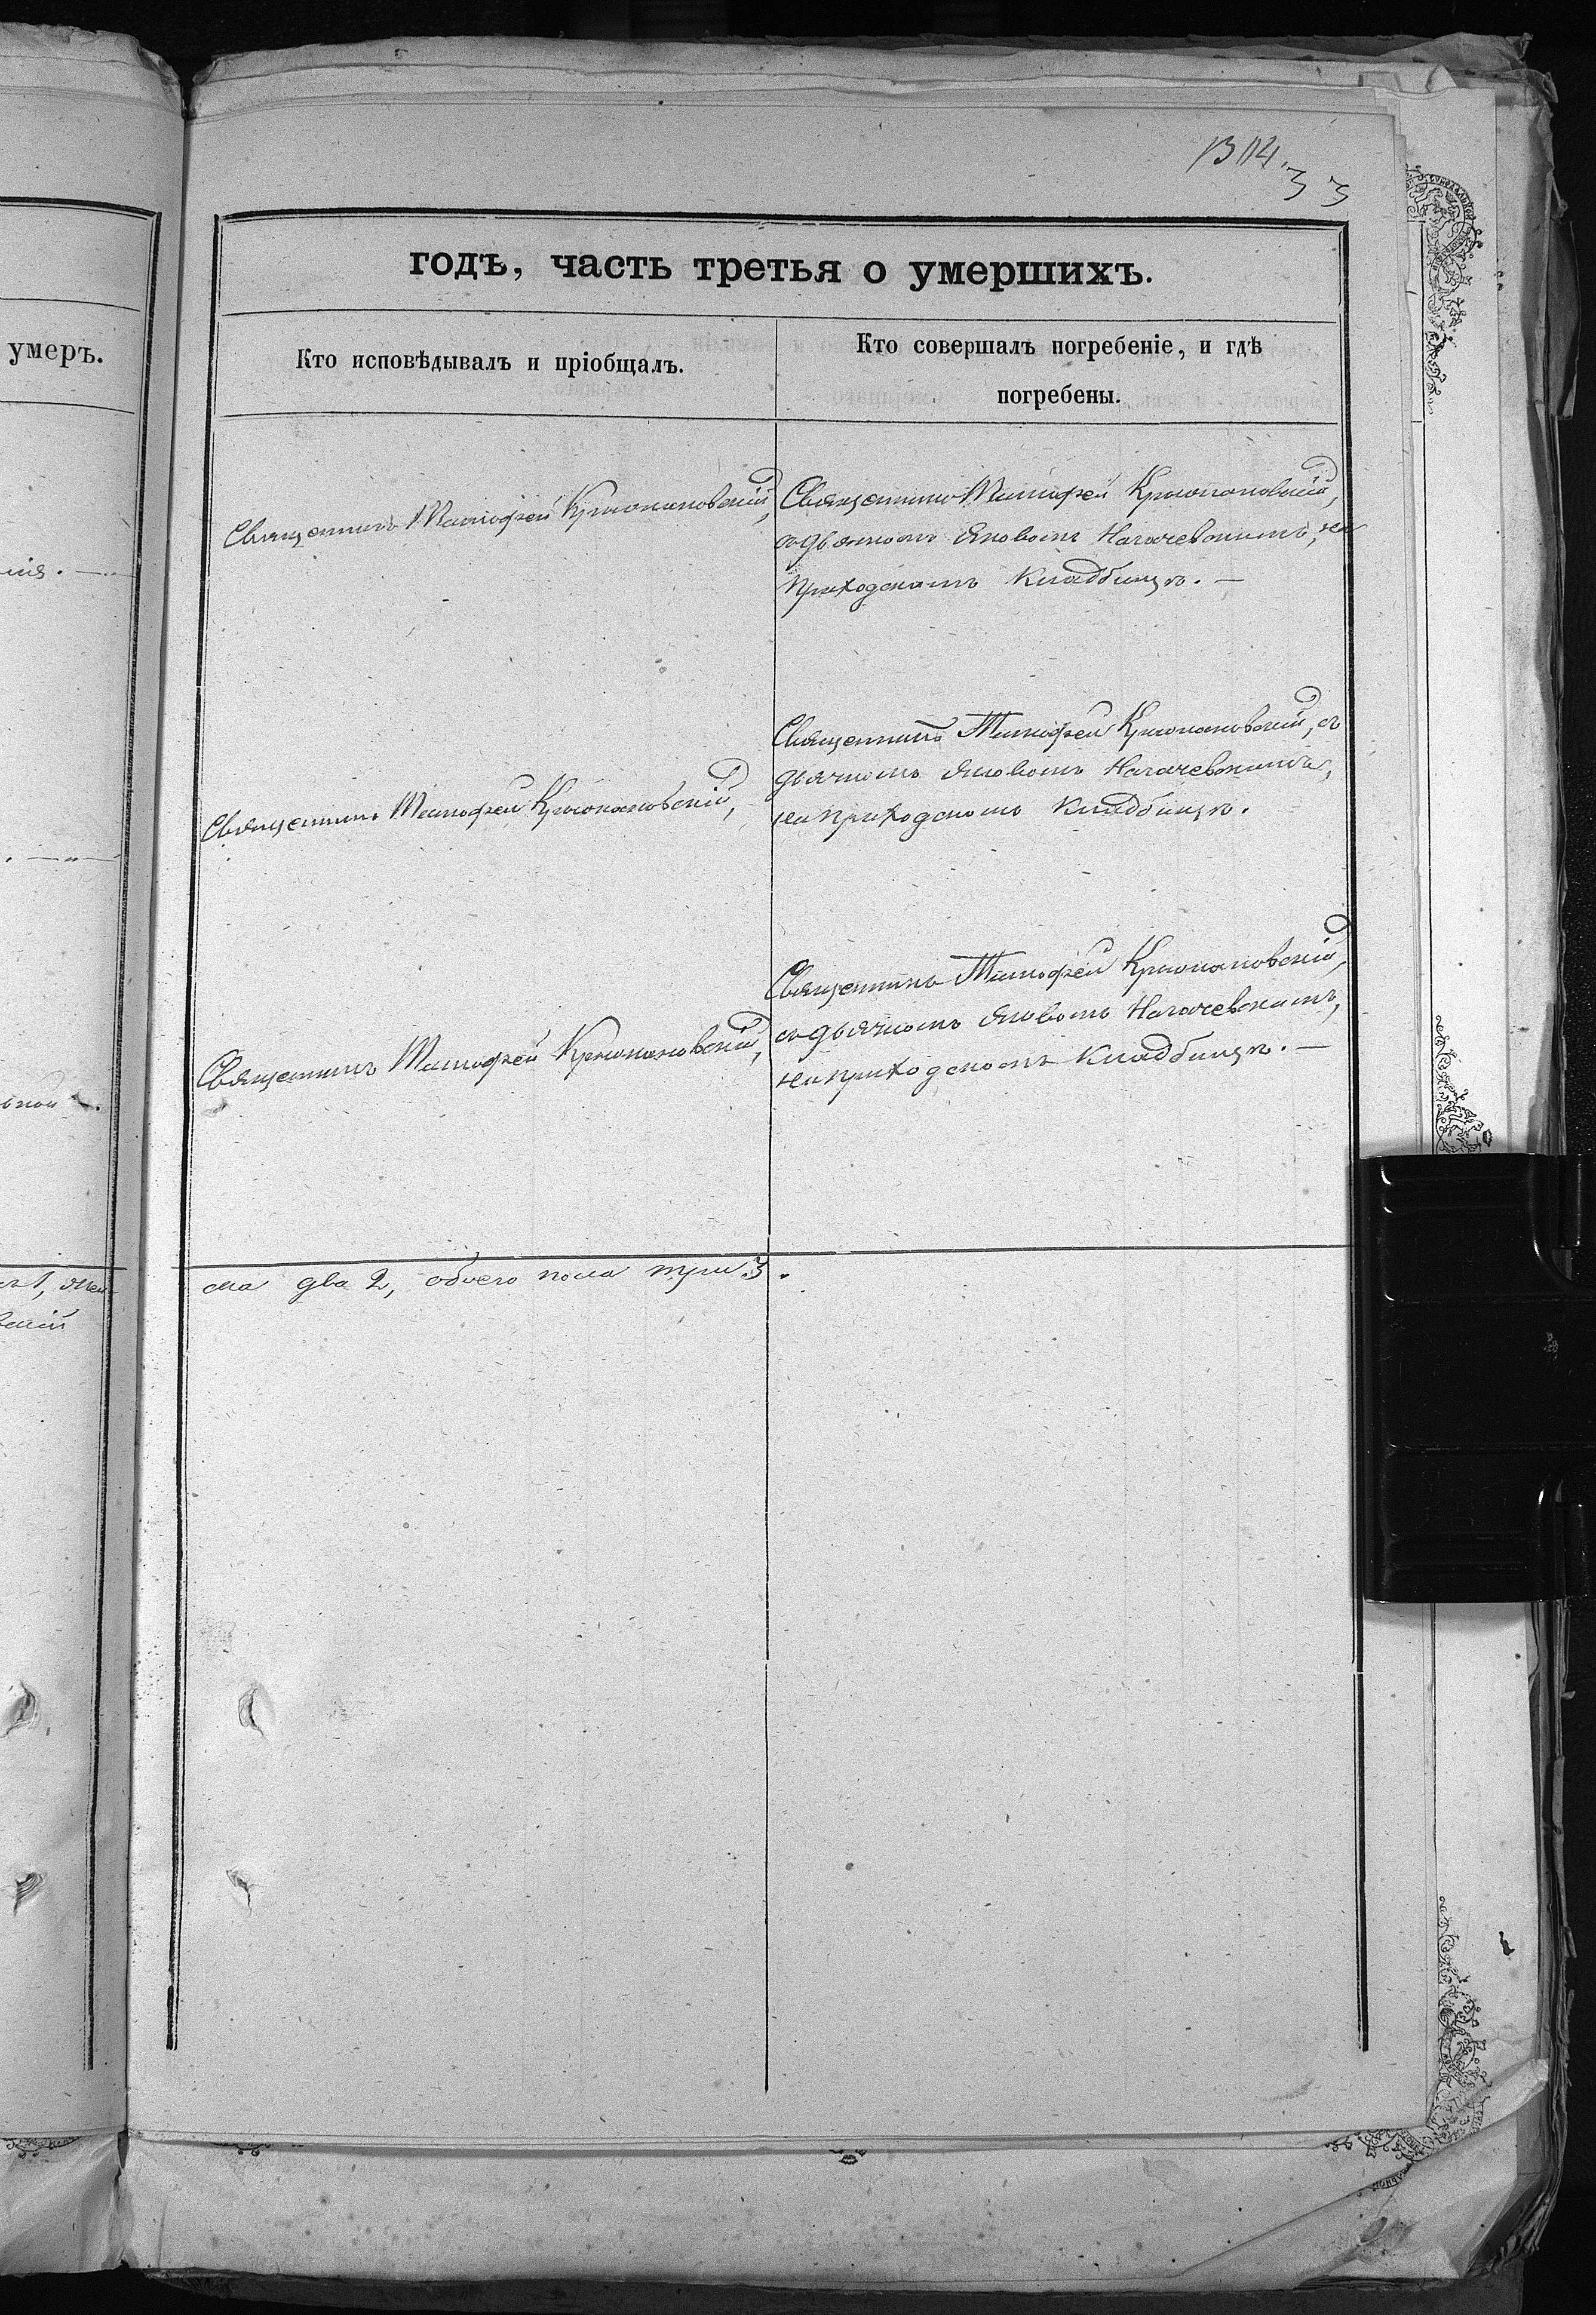 годъ, часть третья о умершихъ.
умеръ.
Кто исповѣдывалъ и пріобщалъ.
Кто совершалъ погребеніе, и гдѣ
погребены.
Священникъ Тимофей Крыжановскій,
Священникъ Тимофей Крыжановскій,
съ дьячкомъ Яковомъ Нагачевскимъ, на
приходскомъ кладбищѣ. —
Священникъ Тимофей Крыжановскій,
Священникъ Тимофей Крыжановскій, съ
дьячкомъ Яковомъ Нагачевскимъ,
на приходскомъ кладбищѣ.
Священникъ Тимофей Крыжановскій,
Священникъ Тимофей Крыжановскій,
съ дьячкомъ Яковомъ Нагачевскимъ,
на приходскомъ кладбищѣ. —
ска два 2, обоего пола три 3.